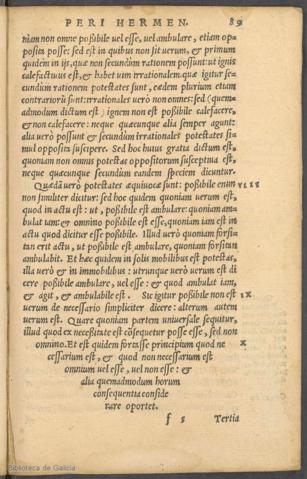 PERI HERMEN. 89
niam non omne possibile uel esse, uel ambulare, etiam op-
posita posse: sed est in quibus non sit uerum, & primum
quidem in ijs, quæ non secundùm rationem possunt: ut ignis
calefactiuus est, & habet uim irrationalem. quæ igitur se-
cundùm rationem potestates sunt, eædem plurium etiam
contrariorũ sunt: irrationales uerò non omnes: sed (quem-
admodum dictum est) ignem non est possibile calefacere,
& non calefacere: neque quæcunque alia semper agunt:
alia uerò possunt & secundùm irrationales potestates si-
mul opposita suscipere. Sed hoc huius gratia dictum est,
quoniam non omnis potestas oppositorum susceptiua est,
neque quæcunque secundùm eandem speciem dicuntur.
Quædã uerò potestates æquiuocæ sunt: possibile enim VIII
non simpliciter dicitur: sed hoc quidem quoniam uerum est,
quod in actu est: ut, possibile est ambulare: quoniam am-
bulat iam: & omnino possibile est esse, quoniam iam est in
actu quod dicitur esse possibile. Illud uerò quoniam forsi-
tan erit actu, ut possibile est ambulare, quoniam forsitan
ambulabit. Et hæc quidem in solis mobilibus est potestas,
illa uerò & in immobilibus: utrunque uerò uerum est di
cere possibile ambulare, uel esse: & quod ambulat iam,
& agit, & ambulabile est. Sic igitur possibile non est IX
uerum de necessario simpliciter dicere: alterum autem
uerum est. Quare quoniam partem uniuersale sequitur,
illud quod ex necessitate est cõsequetur posse esse, sed non
omnino. Et est quidem fortasse principium quod ne X
cessarium est, & quod non necessarium est
omnium uel esse, uel non esse: &
alia quemadmodum horum
consequentia conside
rare oportet.
f 5 Tertia
Biblioteca de Galicia